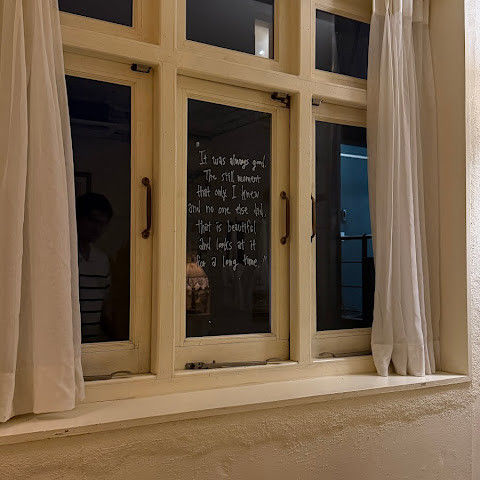 "It was always good.
The still moment
that only I knew
and no one else did,
that is beautiful
and looks at it
for a long time."